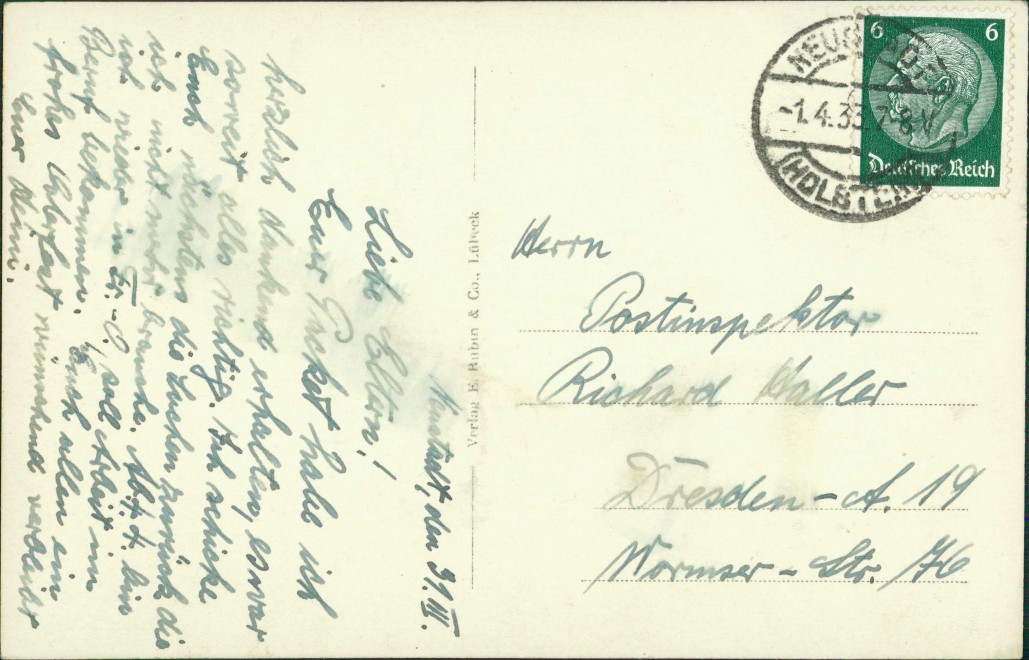 Neustadt, den 31. III.
Liebe Eltern!
Euer Paket habe ich
herzlich dankend erhalten, es war
soweit alles richtig. Ich schicke
Euch nächstens die Sachen zurück, die
ich nicht mehr brauche. Ab 4. bin
ich wieder in soll Arbeit im
Beruf bekommen. Euch allen ein
frohes Osterfest wünschend verbleibt
Euer
Verlag E. Rubin & Co., Lübeck
NEUSTADT
-1.4.33.7-8 V
(HOLSTEIN)
6 6
Deutsches Reich
Herrn
Postinspektor
Richard Haller
Dresden-A. 19
Wormser-Str. 76